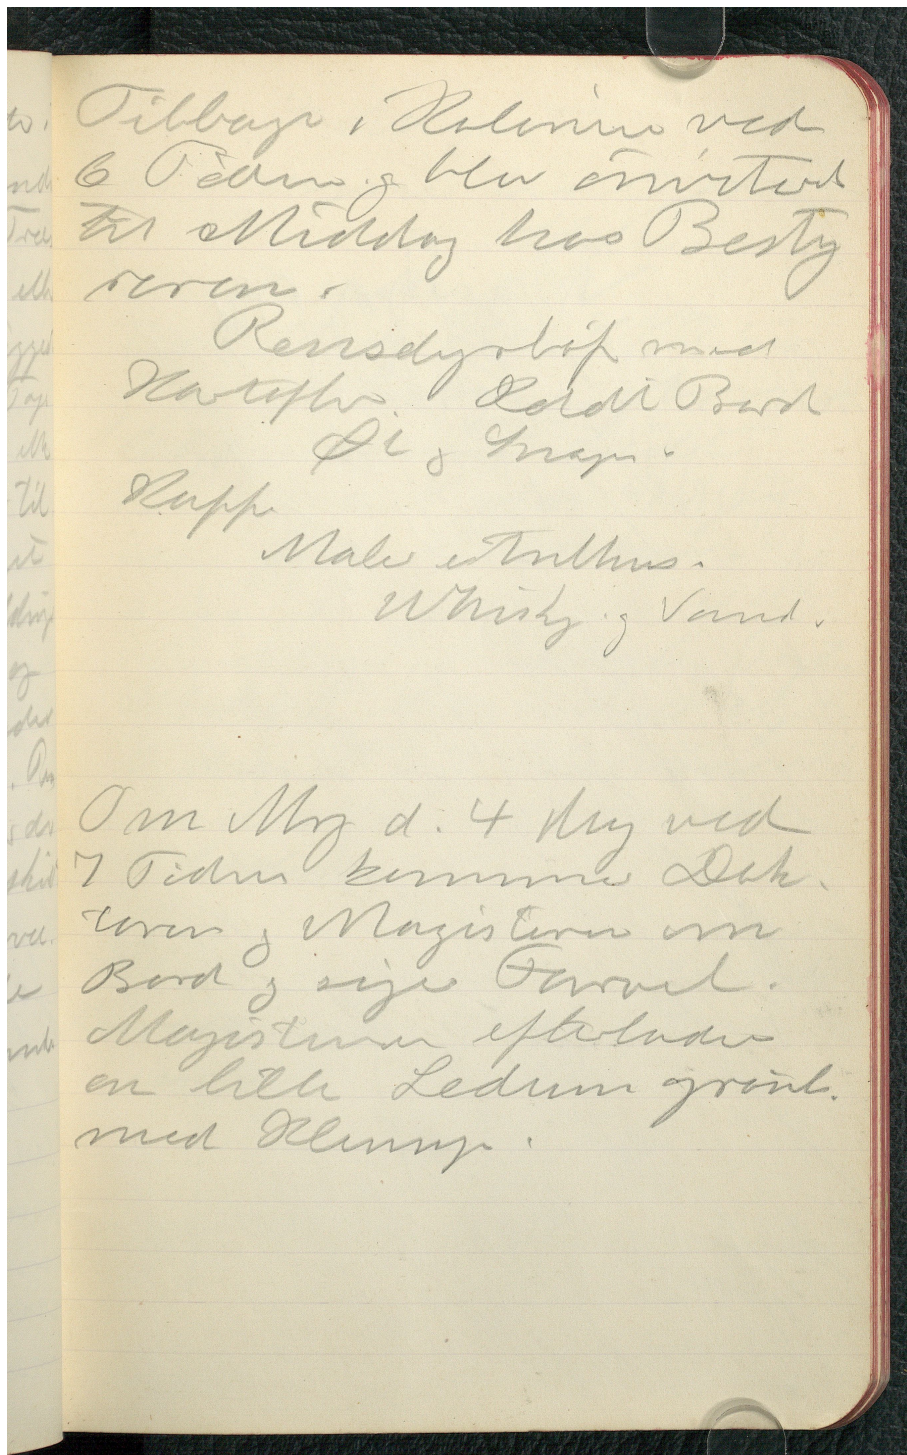 Tilbage i Kolonien ved
6 Tiden og blev inviteret
til Middag hos Besty
reren.
Rensdyrbøf med
Kartofler. Koldt Bord
Øl og Snaps.
Kaffe
Maler i Anlhus.
Whisky og Vand.
Om Mrg d. 4 Aug ved
7 Tiden kommer Dok-
toren og Magisteren om
Bord og siger Farvel.
Magisteren efterlader
en lille Ledum grønl.
med Klump.